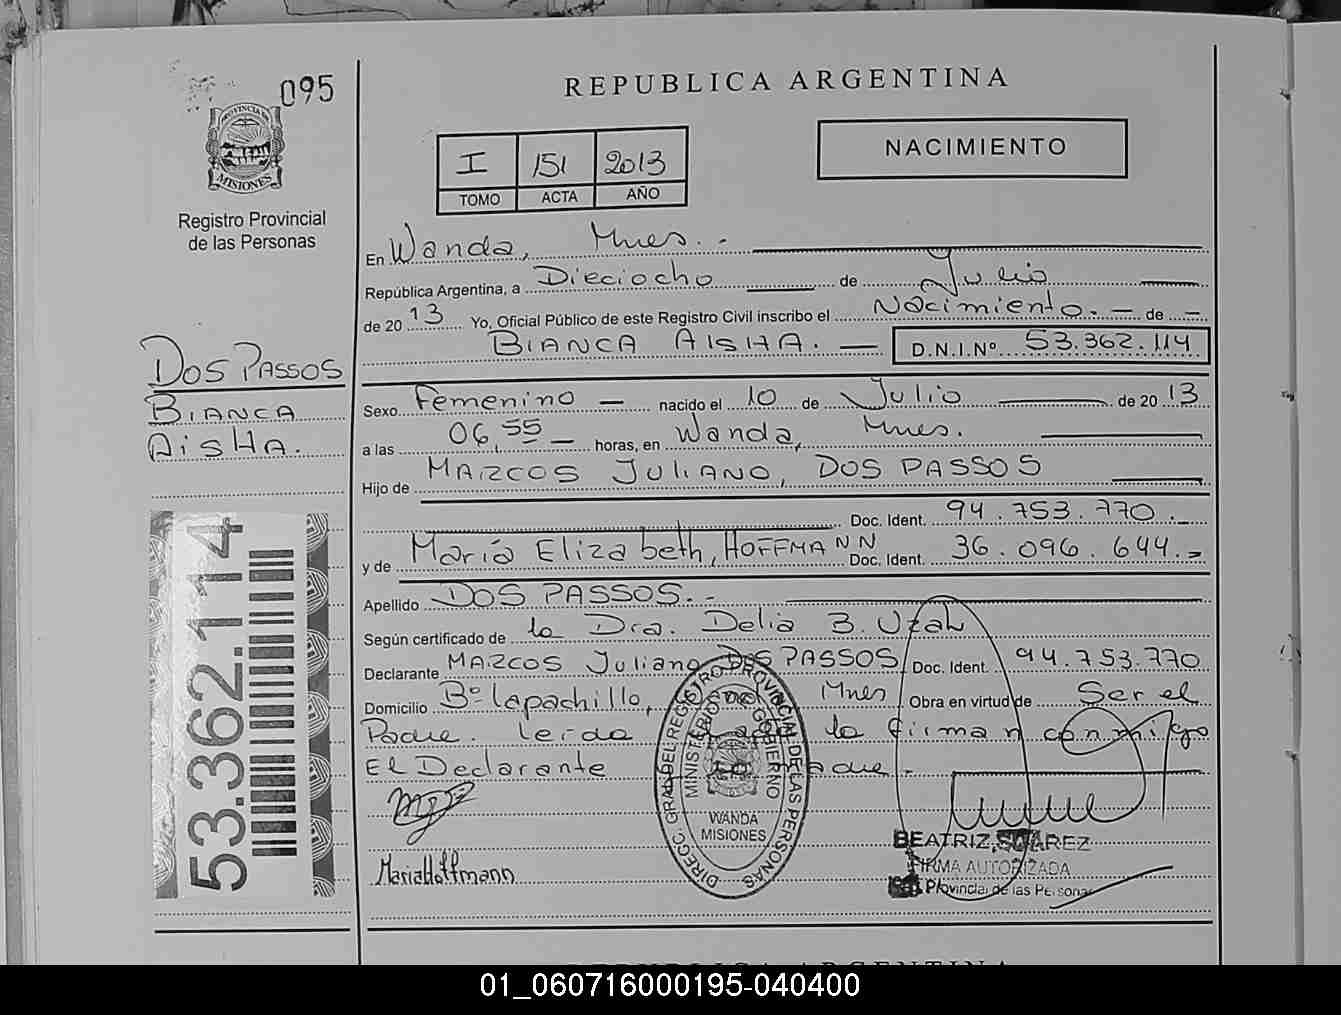 095
PROVINCIA DE
MISIONES
Registro Provincial
de las Personas
DOS PASSOS
BIANCA
AISHA.
53.362.114
REPUBLICA ARGENTINA
NACIMIENTO
I 151 2013
TOMO ACTA AÑO
En Wanda, Mnes.-
República Argentina, a Dieciocho de Julio
de 20 13 Yo, Oficial Público de este Registro Civil inscribo el Nacimiento. - de -
BIANCA AISHA. — D.N.I.Nº 53.362.114
Sexo Femenino — nacido el 10 de Julio de 20 13
a las 06,55 — horas, en Wanda, Mnes.
Hijo de MARCOS JULIANO, DOS PASSOS
Doc. Ident. 94.753.770.-
y de María Elizabeth, HOFFMANN Doc. Ident. 36.096.644.-
Apellido DOS PASSOS.-
Según certificado de la Dra. Delia B.
Declarante MARCOS Juliano DOS PASSOS Doc. Ident. 94.753.770
Domicilio Bº Lapachillo, Mnes Obra en virtud de Ser el
Padre. leida la firman conmigo
El Declarante Madre.-
MariaHoffmann
DIRECC. GRAL DEL REGISTRO PROVINCIAL DE LAS PERSONAS
MINISTERIO DE GOBIERNO
WANDA
MISIONES
BEATRIZ SUAREZ
FIRMA AUTORIZADA
Provincial de las Personas
REPUBLICA ARGENTINA
01_060716000195-040400